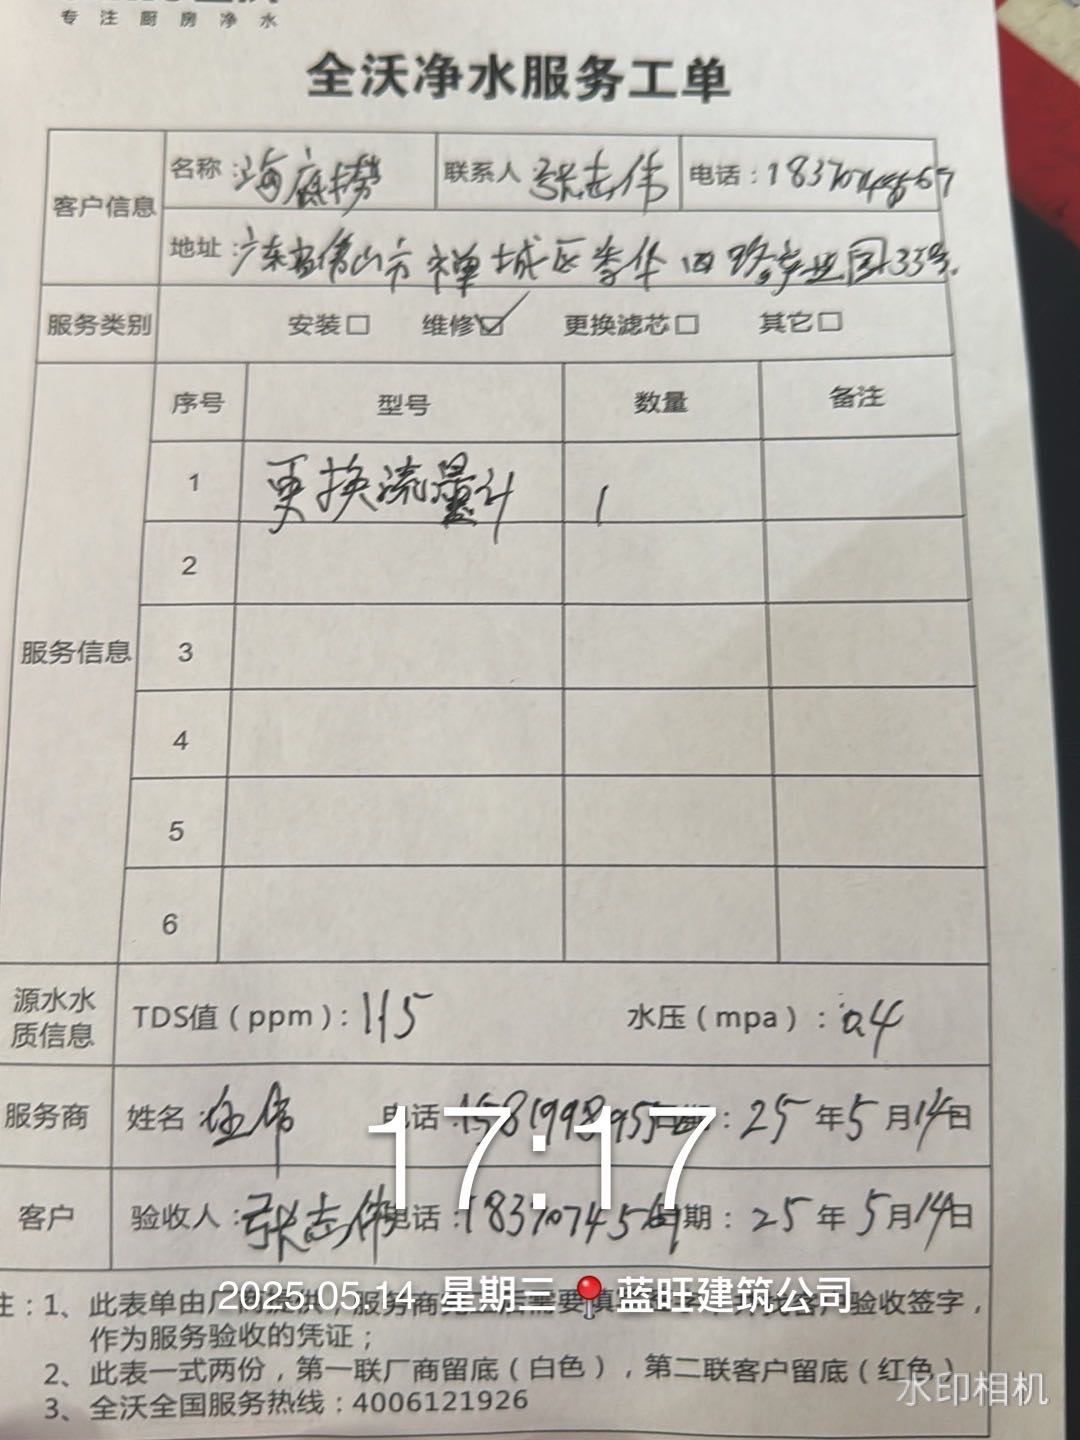 专注厨房净水
全沃净水服务工单
客户信息 名称：海底捞 联系人：张志伟 电话：
地址：广东省佛山市禅城区季华四路产业园33号.
服务类别 安装□ 维修☑ 更换滤芯□ 其它□
服务信息
序号 型号 数量 备注
1 更换流量计 1
2
3
4
5
6
源水水质信息 TDS值（ppm）：115 水压（mpa）：0.4
服务商 姓名：伍伟 电话： 日期：25年5月14日
17:17
客户 验收人：张志伟 电话：18370745 日期：25年5月14日
2025.05.14 星期三 📍蓝旺建筑公司
注：1、此表单由厂 服务商 需要填 客户验收签字，
作为服务验收的凭证；
2、此表一式两份，第一联厂商留底（白色），第二联客户留底（红色）
3、全沃全国服务热线：4006121926
水印相机